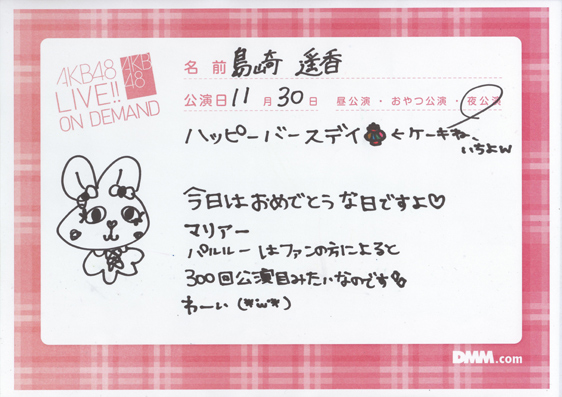 AKB48
LIVE!!
ON DEMAND
AKB
48
名 前 島崎 遥香
公演日 11 月 30 日 昼公演・おやつ公演・夜公演
ハッピーバースデイ ←ケーキね、
いちよw
今日はおめでとうな日ですよ♡
マリアー
パルルーはファンの方によると
300回公演目みたいなのです
わーい(*'ω'*)
DMM.com